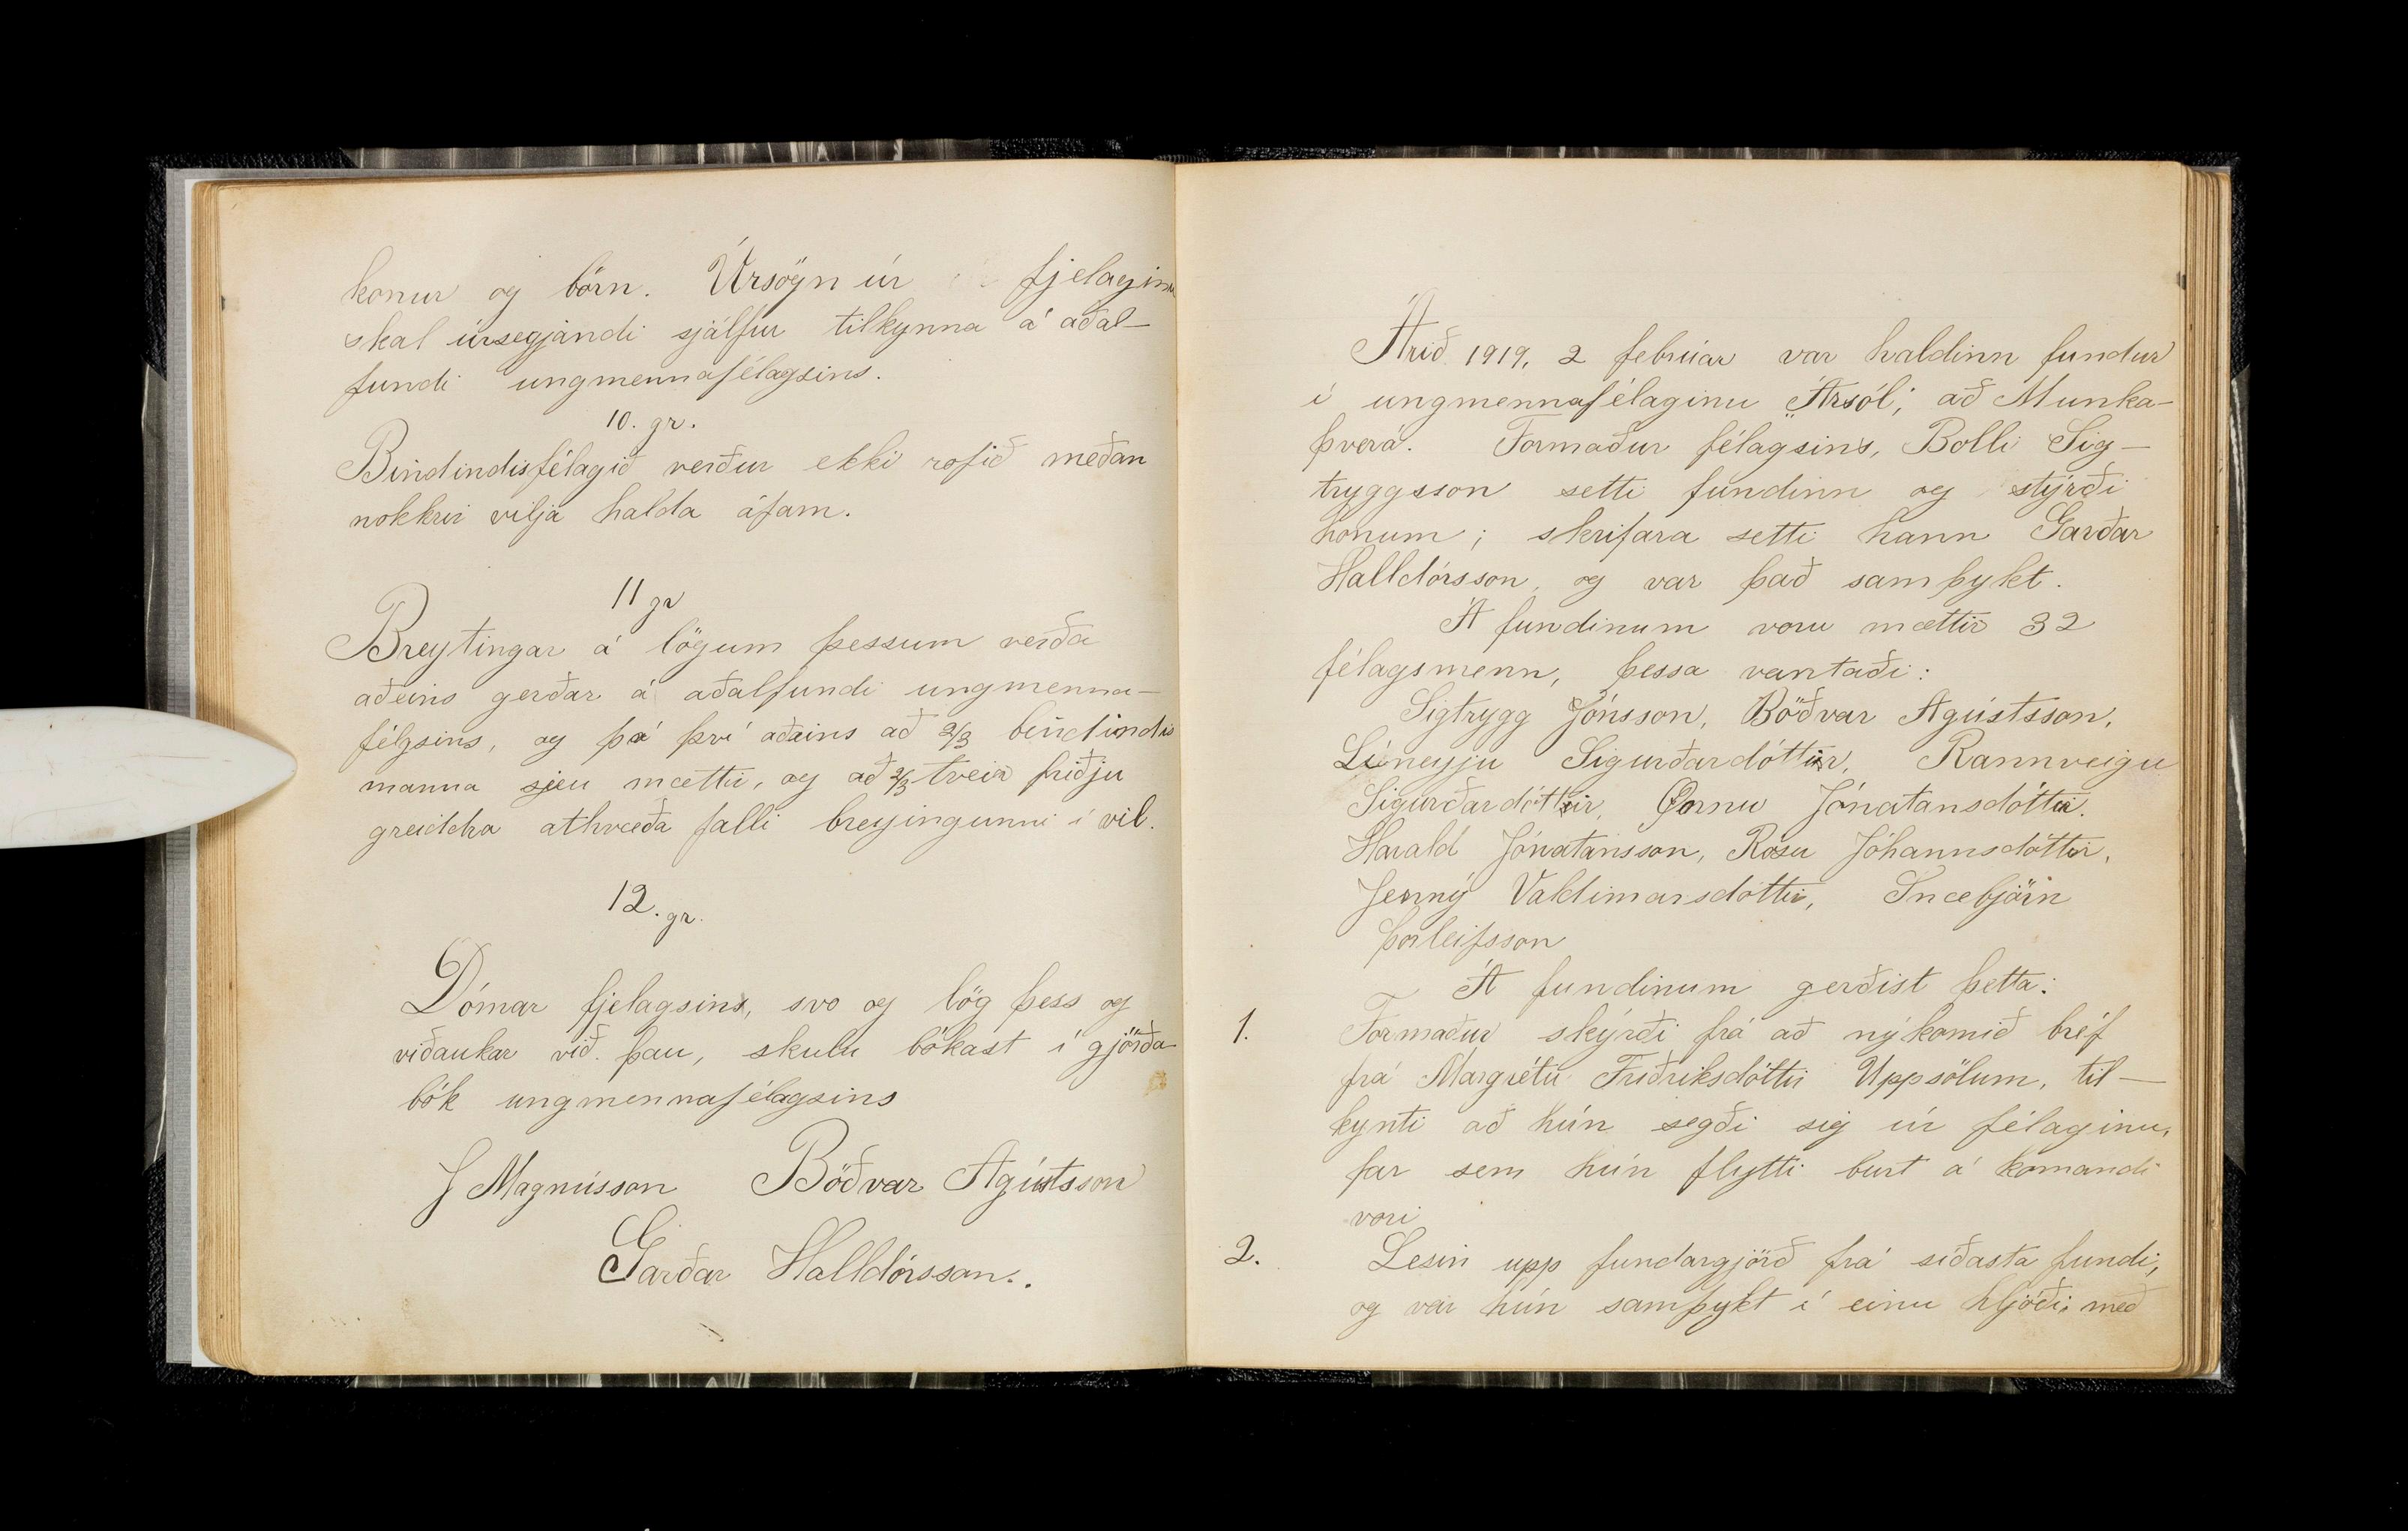 konur og börn. Úrsögn úr fjelaginu
skal úrsegjandi sjálfur tilkynna á aðal-
fundi ungmennafélagsins.
10. gr.
Bindindisfélagið verður ekki rofið meðan
nokkrir vilja halda áfam.
11 gr
Breytingar á lögum þessum verða
aðeins gerðar á aðalfundi ungmenna-
félgsins, og þá því aðeins að 2/3 bindindis
manna sjeu mættir, og að 2/3 tveir þriðju
greiddra athvæða falli breyingunni í vil.
12. gr.
Dómar fjelagsins, svo og lög þess og
viðaukar við. þau, skulu bókast í gjörða-
bók ungmennafélagsins
J Magnússon Böðvar Agústsson
Garðar Halldórsson..
Árið 1919, 2 febrúar var haldinn fundur
í ungmennafélaginu „Ársól", að Munka-
þverá. Formaður félagsins, Bolli Sig-
tryggsson setti fundinn og stýrði
honum; skrifara setti hann Garðar
Halldórsson, og var það samþykt.
Á fundinum voru mættir 32
félagsmenn, þessa vantaði:
Sigtrygg Jónsson, Böðvar Agústsson,
Líneyju Sigurðardóttir, Rannveigu
Sigurðardóttir, Jónatansdóttir.
Harald Jónatansson, Rósu Jóhannsdóttir,
Jenný Valdimarsdóttir, Snæbjörn
Þorleifsson
Á fundinum gerðist þetta:
1. Formaður skýrði frá að nýkomið bréf
frá Margrétu Friðriksdóttir Uppsölum, til-
kynti að hún segði sig úr félaginu,
þar sem hún flytti burt á komandi
vori
2. Lesin upp fundargjörð frá síðasta fundi,
og var hún samþykt í einu hljóði, með